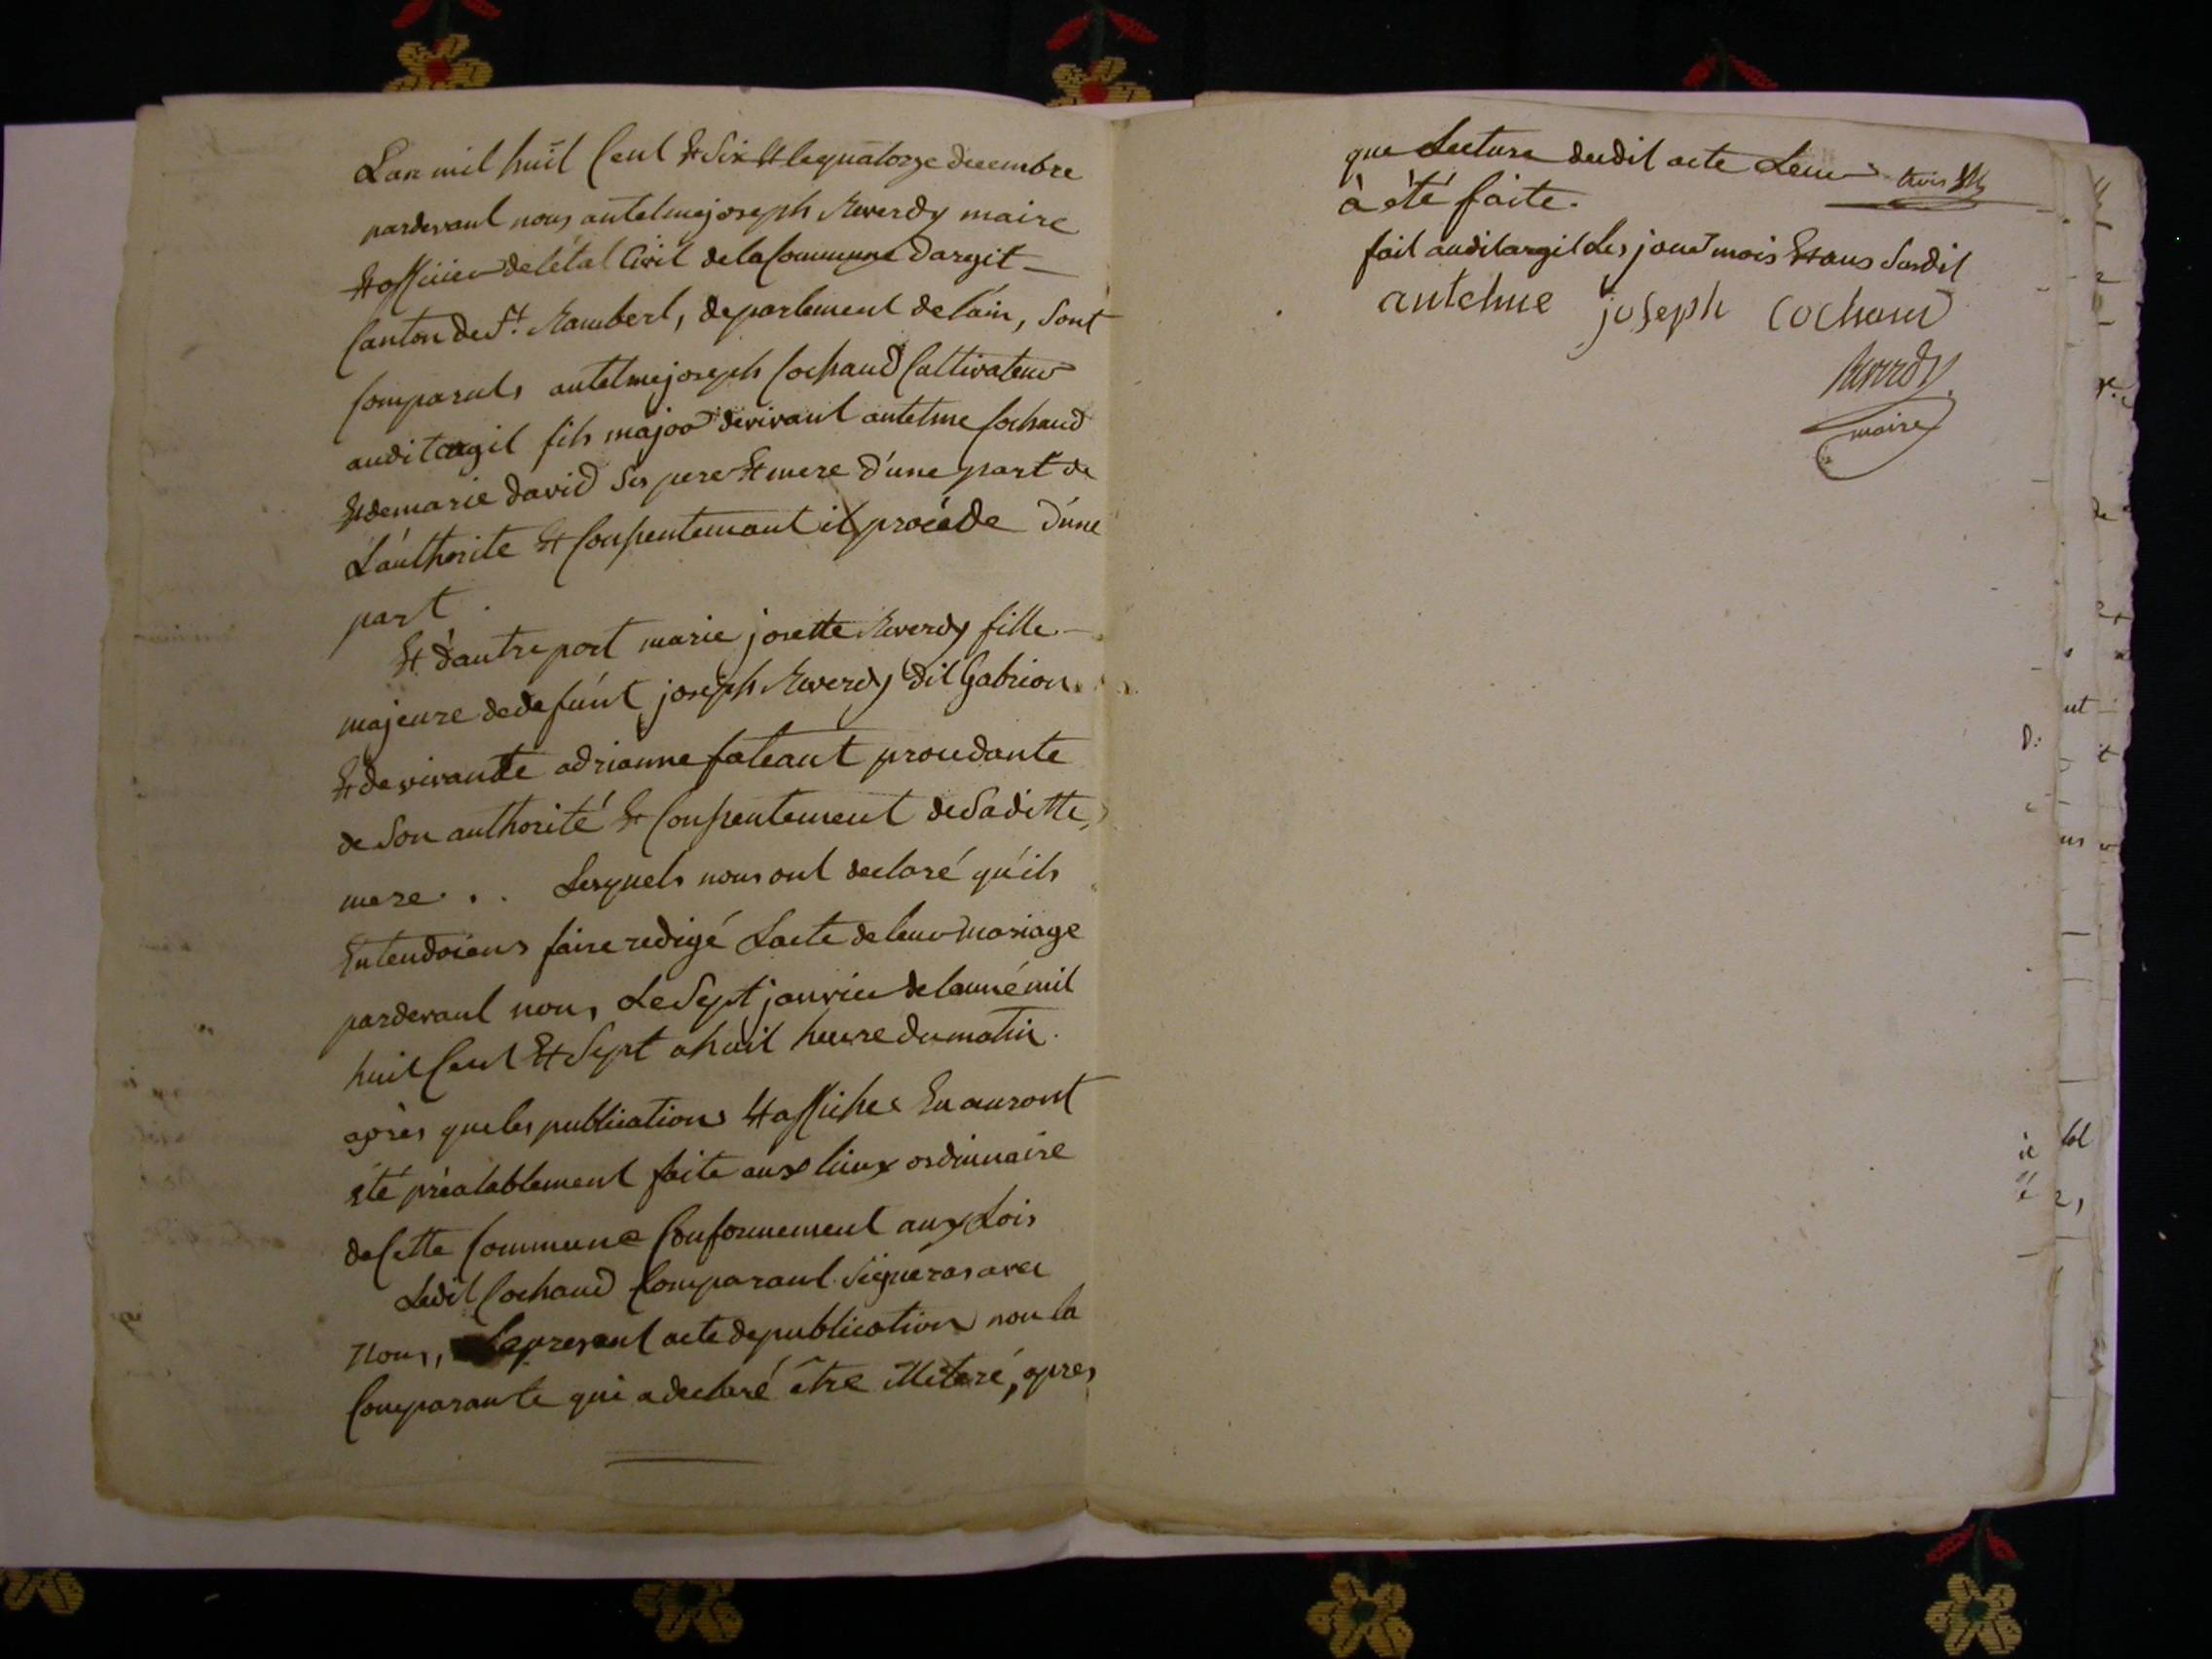 Lan mil huit Cent & Six & le quatorze decembre
pardevant nous antelme joseph Reverdy maire
& officier de létat Civil de la Commune dargit
Canton de St. Rambert, departement de láin, Sont
Comparuts antelme joseph Cochand Cultivateur
audit argil fils major de vivant antelme Cochand
& de marie david Ses pere & mere d'une part de
Láuthorite & Consentemant il procéde d'une
part.
& d'autre part marie josette Reverdy fille
majeure de defúnt joseph Reverdy dit Gabrion
& de vivante adrianne fateant proudante
de Son authorité & Consentement de Saditte
mere . . Lesquels nous ont declaré qu'ils
Entendoiens faire redigé Lacte de leur mariage
pardevant nous Le Sept janvier de lanné mil
huit Cent & Sept a huit heure du matin.
après que les publications & affiches En auront
été préalablement faite aux lieux ordinnaire
de Cette Commune Conformement aux Lois
Ledit Cochand Comparant Signéras avec
Nous, Le present acte de publication non la
Comparante qui a declaré être illiteré, apres
que Lecture dudit acte Leur
à été faite.
fait audit argil Les jour mois & ans Susdit
antelme joseph Cochand
Reverdy
maire